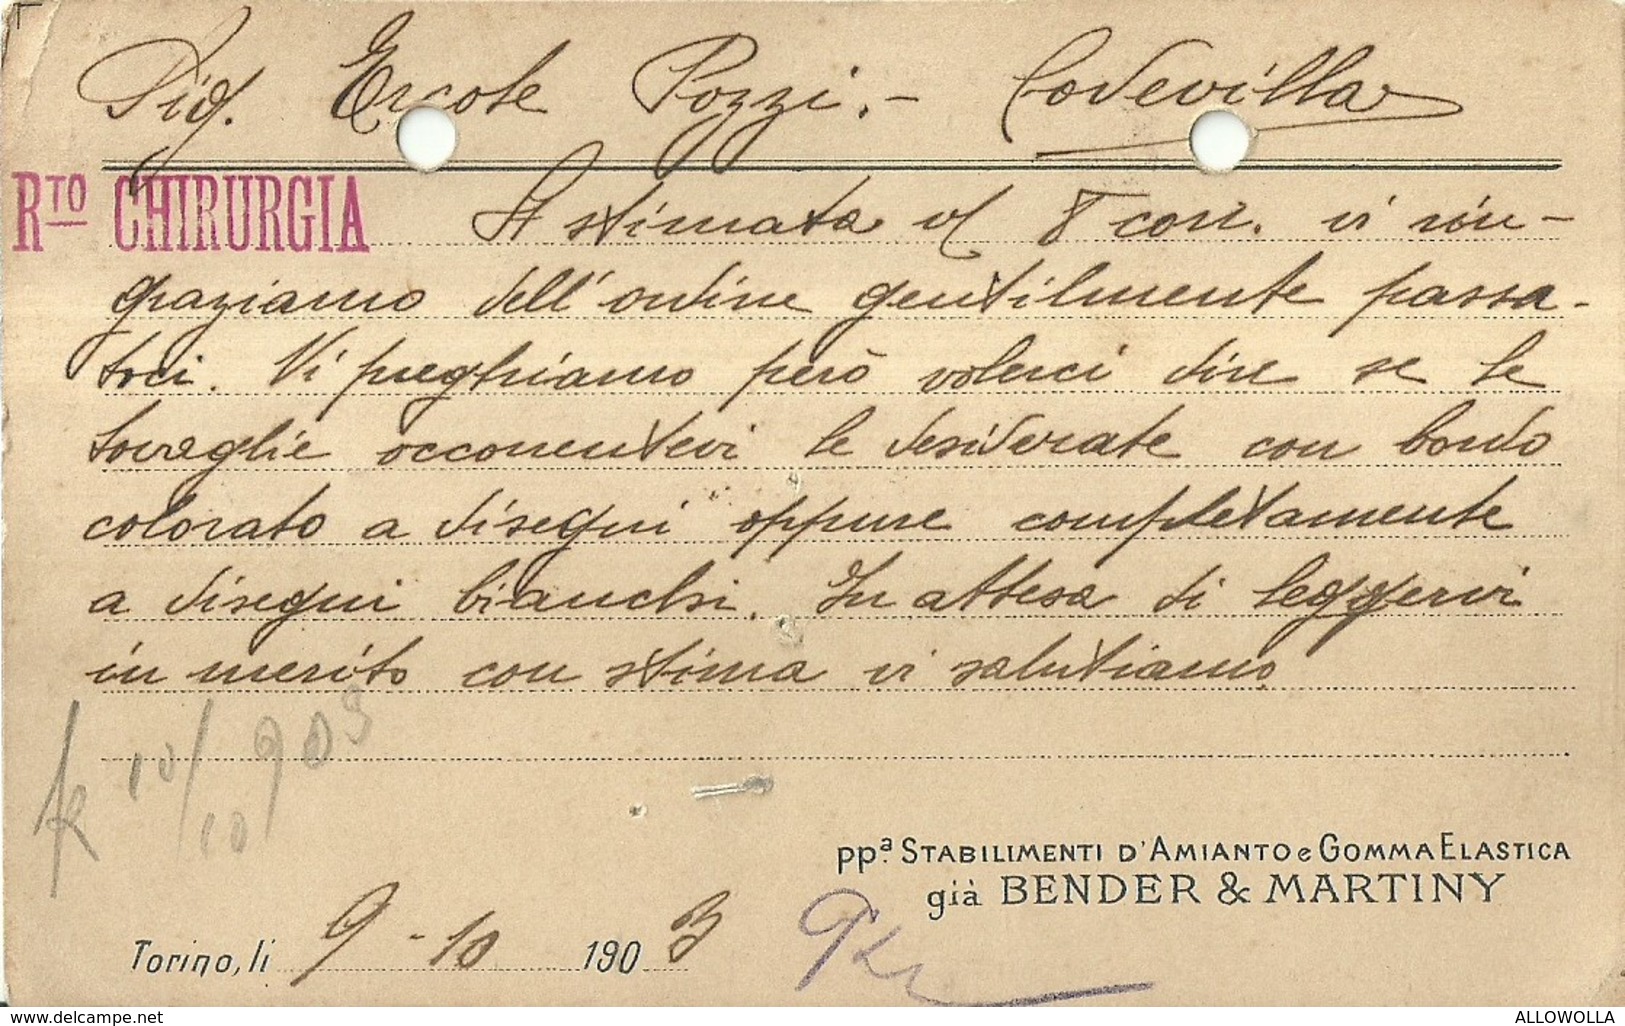 Sig. Ercole Pozzi. - Codevilla
RTO CHIRURGIA
A stimata v/ 8 corr. vi rin-
graziamo dell'ordine gentilmente passa-
toci. Vi preghiamo però volerci dire se le
tovaglie occorrentevi le desiderate con bordo
colorato a disegni oppure completamente
a disegni bianchi. In attesa di leggervi
in merito con stima vi salutiamo
10/10 903
ppª. STABILIMENTI D'AMIANTO e GOMMA ELASTICA
già BENDER & MARTINY
Torino, li 9-10 1903
www.delcampe.net
ALLOWOLLA